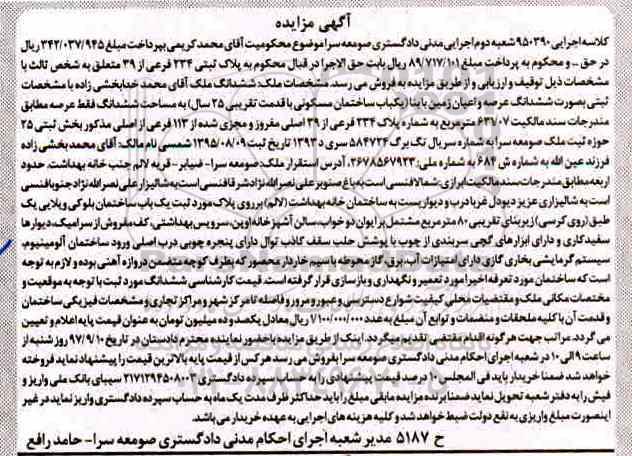 آگهی مزایده
کلاسه اجرایی ۹۵۰۳۹۰ شعبه دوم اجرایی مدنی دادگستری صومعه سرا موضوع محکومیت آقای محمد کریمی بپرداخت مبلغ ۳۴۲/۰۳۷/۹۴۵ ریال
در حق ... و محکوم به پرداخت مبلغ ۸۹/۷۱۷/۱۰۱ ریال بابت حق الاجرا در قبال محکوم به پلاک ثبتی ۲۳۴ فرعی از ۳۹ متعلق به شخص ثالث با
مشخصات ذیل توقیف و ارزیابی و از طریق مزایده به فروش می رسد. مشخصات ملک: ششدانگ ملک آقای محمد خدابخشی زاده با مشخصات
ثبتی بصورت ششدانگ عرصه و اعیان زمین با بنا (یکباب ساختمان مسکونی با قدمت تقریبی ۲۵ سال) به مساحت ششدانگ فقط عرصه مطابق
مندرجات سند مالکیت ۶۳۱/۰۷ مترمربع به شماره پلاک ۲۳۴ فرعی از ۳۹ اصلی مفروز و مجزی شده از ۱۱۳ فرعی از اصلی مذکور بخش ثبتی ۲۵
حوزه ثبت ملک صومعه سرا به شماره سریال تک برگ ۵۸۴۷۲۴ سری د ۱۳۹۳ تاریخ ثبت ۱۳۹۵/۰۸/۰۹ شمسی نام مالک: آقای محمد بخشی زاده
فرزند عین الله به شماره ش ۶۸۴ به شماره ملی: ۲۶۷۸۵۶۷۹۲۳. آدرس استقرار ملک: صومعه سرا- ضیابر - قریه لالم جنب خانه بهداشت. حدود
اربعه مطابق مندرجات سند مالکیت ابرازی: شمالا فنسی است به باغ صنوبر علی نصرالله نژاد شرقا فنسی است به شالیزار علی نصرالله نژاد جنوبا فنسی
است به شالیزاری عزیز دیودل غربا درب و دیواریست به ساختمان خانه بهداشت (لالم) بر روی پلاک مورد ثبت یک باب ساختمان بلوکی ویلایی یک
طبق (روی کرسی) زیربنای تقریبی ۸۰ مترمربع مشتمل بر ایوان دو خواب سالن آشپزخانه اوپن، سرویس بهداشتی، کف مفروش از سرامیک، دیوارها
سفیدکاری و دارای ابزارهای گچی سربندی از چوب با پوشش حلب سقف کاذب توال دارای پنجره چوبی درب اصلی ورود ساختمان آلومینیوم،
سیستم گرمایشی بخاری گازی دارای امتیازات آب، برق، گاز محوطه با سیم خاردار محصور که بطرف کوچه متضمن دروازه آهنی بوده و لازم به توجه
است که ساختمان مورد تعرفه اخیرا مورد تعمیر و نگهداری و بازسازی قرار گرفته است. قیمت کارشناسی ششدانگ مورد ثبت با توجه به موقعیت و
مختصات مکانی ملک و مقتضیات محلی کیفیت شوارع دسترسی و عبور و مرور و فاصله تا مرکز شهر و مراکز تجاری و مشخصات فیزیکی ساختمان
و قدمت آن با کلیه ملحقات و منضمات و توابع آن مبلغ به عدد ۱/۱۰۰/۰۰۰/۰۰۰ ریال معادل یکصد و ده میلیون تومان به عنوان قیمت پایه اعلام و تعیین
می گردد. مراتب جهت هر گونه اقدام مقتضی تقدیم میگردد. اینک از طریق مزایده با حضور نماینده محترم دادستان در تاریخ ۹۷/۹/۱۰ روز شنبه از
ساعت ۹ الی ۱۰ در شعبه اجرای احکام مدنی دادگستری صومعه سرا بفروش می رسد هر کس از قیمت پایه بالاترین قیمت را پیشنهاد نماید فروخته
خواهد شد ضمنا خریدار باید فی المجلس ۱۰ درصد قیمت پیشنهادی را به حساب سپرده دادگستری ۲۱۷۱۲۹۴۵۰۸۰۰۳ سیبای بانک ملی واریز و
فیش را به دفتر شعبه تحویل نماید ضمنا برنده مزایده مابقی مبلغ را باید حداکثر ظرف مدت یک ماه به حساب سپرده دادگستری واریز نماید در غیر
اینصورت مبلغ واریزی به نفع دولت ضبط خواهد شد و کلیه هزینه های اجرایی به عهده خریدار می باشد.
ح ۵۱۸۷ مدیر شعبه اجرای احکام مدنی دادگستری صومعه سرا- حامد رافع